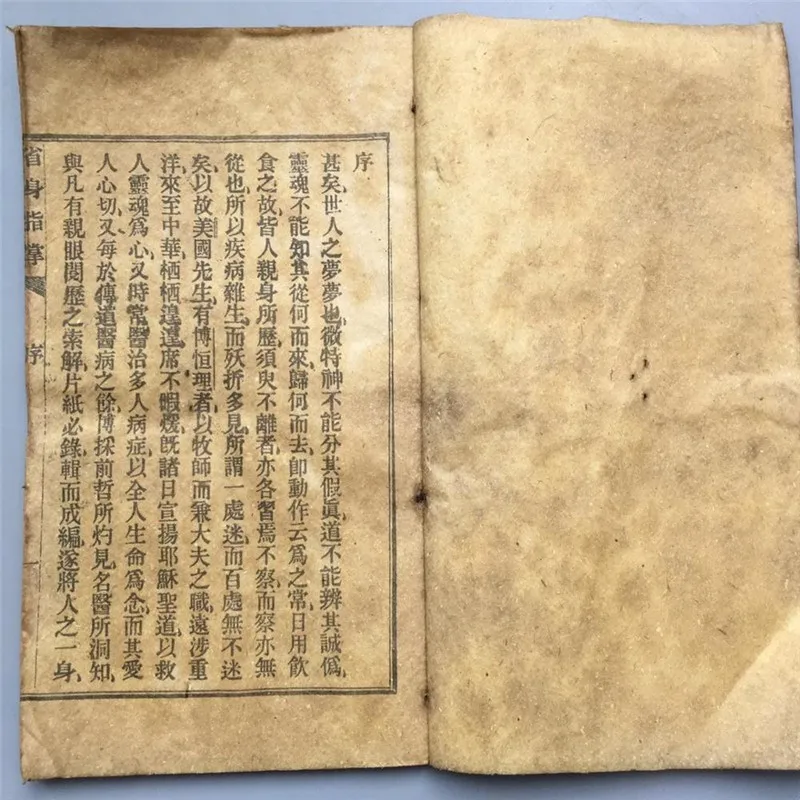 序
甚矣、世人之夢夢也、微特神不能分其假眞、道不能辨其誠僞、
靈魂不能知其從何而來、歸何而去、卽動作云爲之常、日用飮
食之故、皆人親身所歷、須臾不離者、亦各習焉不察、而察亦無
從也、所以疾病雜生、而殀折多見、所謂一處迷、而百處無不迷
矣、以故美國先生、有博恒理者、以牧師而兼大夫之職、遠涉重
洋、來至中華、栖栖遑遑、席不暇煖、旣諸日宣揚耶穌聖道、以救
人靈魂爲心、又時常醫治多人病症、以全人生命爲念、而其愛
人心切、又每於傳道醫病之餘、博採前哲所灼見、名醫所洞知、
與凡有親眼閱歷之索解、片紙必錄、輯而成編、遂將人之一身、
省身指掌 序